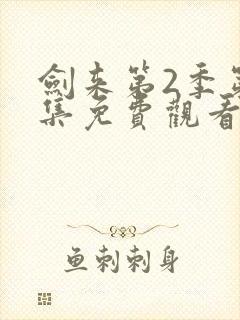 劍来第2季第
集免費觀看
鱼刺刺身